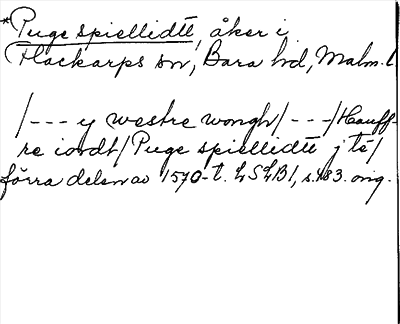 *Puge spiellidtt, åker i
Flackarps sn, Bara hd, Malm. l.
/--- y westre wongh/ ---/Hauff-
re iordt/Puge spiellidtt j tē/
förra delen av 1570-t. LSLB1, s. 483. orig.